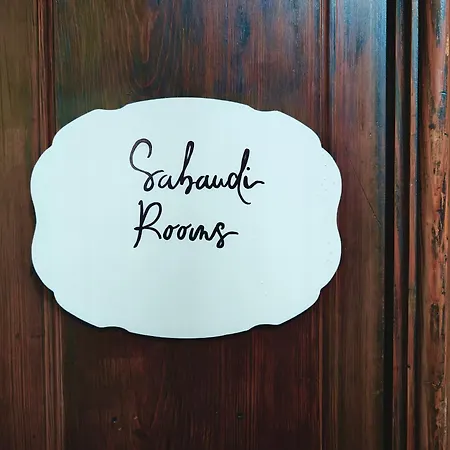 Sabaudi
Rooms